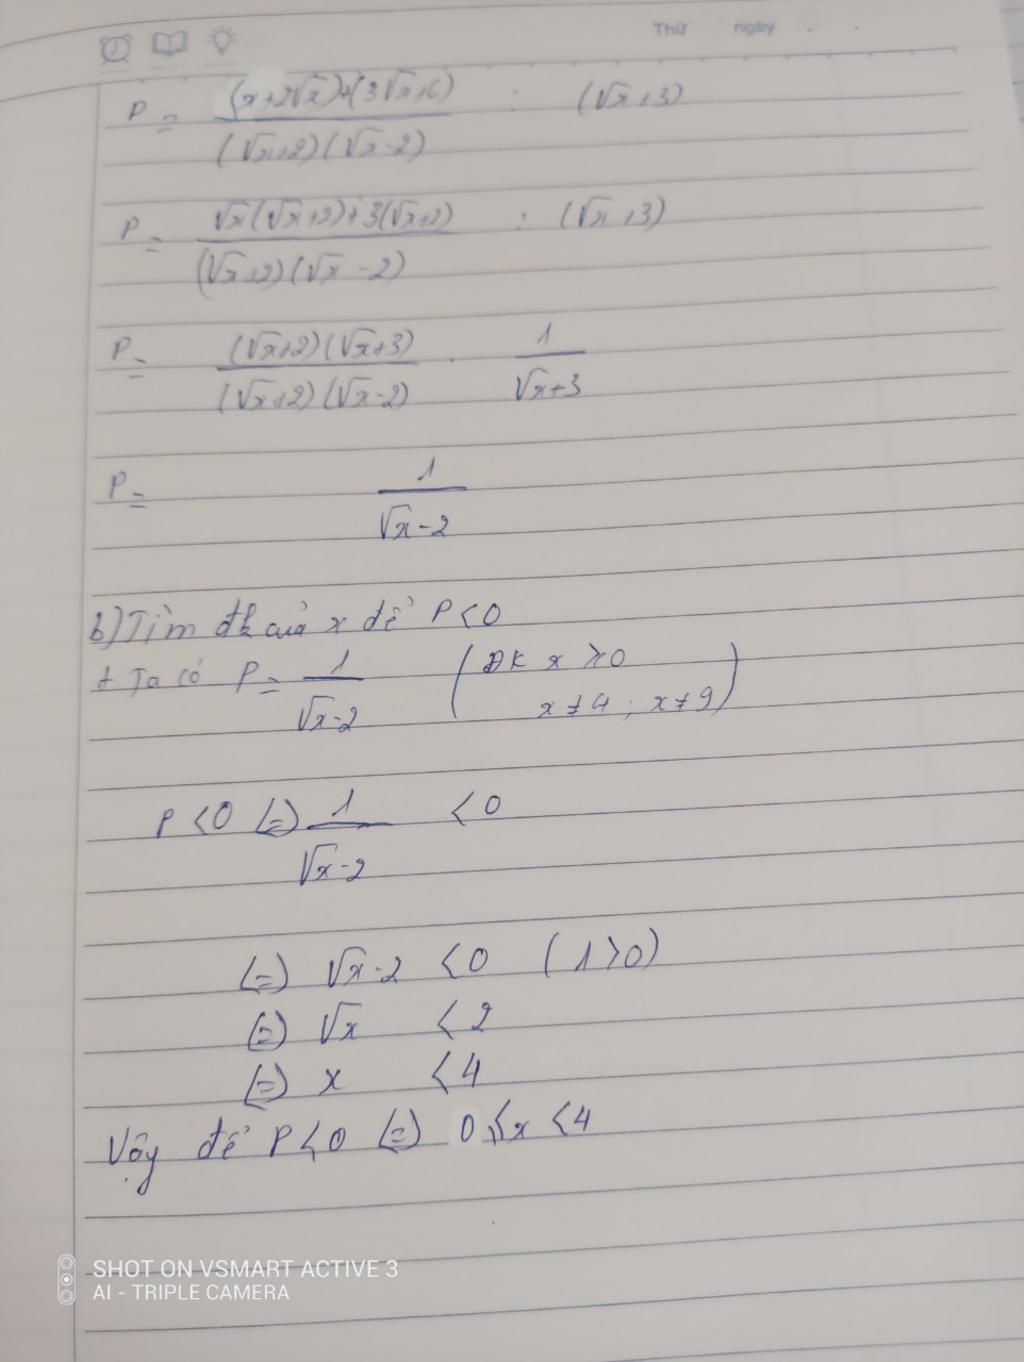 Thứ ngày
P = (x+2√x)+(3√x+6) / (√x+2)(√x-2) : (√x+3)
P = √x(√x+2)+3(√x+2) / (√x+2)(√x-2) : (√x+3)
P = (√x+2)(√x+3) / (√x+2)(√x-2) . 1 / √x+3
P = 1 / √x-2
b) Tìm đk của x để P<0
+ Ta có P = 1 / √x-2 (ĐK x ⩾ 0
x ≠ 4 ; x ≠ 9)
P<0 (=) 1 / √x-2 < 0
(=) √x-2 < 0 (1>0)
(=) √x < 2
(=) x < 4
Vậy để P<0 (=) 0 ⩽ x < 4
SHOT ON VSMART ACTIVE 3
AI - TRIPLE CAMERA